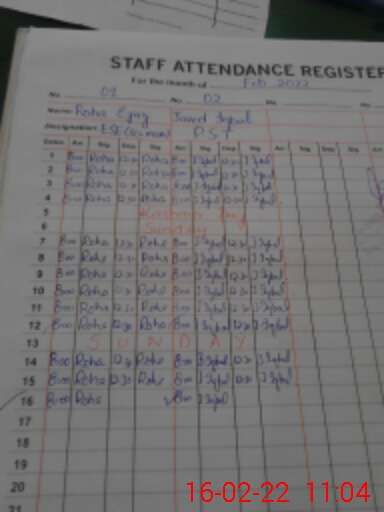 STAFF ATTENDANCE REGISTER
For the month of Feb 2022
No. 01 No. 02 No.
Name: Roha Ejaz Javed Iqbal
Designation: PST
Dates Arr. Sig. Dep. Sig. Arr. Sig. Dep. Sig. Arr. Sig. Dep. Sig.
1 8:00 Roha 12:30 Roha 8:00 J Iqbal 12:30 J Iqbal
2 8:00 Roha 12:30 Roha 8:00 J Iqbal 12:30 J Iqbal
3 8:00 Roha 12:30 Roha 8:00 J Iqbal 12:30 J Iqbal
4 8:00 Roha 12:30 Roha 8:00 J Iqbal 12:30 J Iqbal
5 Kashmir Day
6 Sunday
7 8:00 Roha 12:30 Roha 8:00 J Iqbal 12:30 J Iqbal
8 8:00 Roha 12:30 Roha 8:00 J Iqbal 12:30 J Iqbal
9 8:00 Roha 12:30 Roha 8:00 J Iqbal 12:30 J Iqbal
10 8:00 Roha 12:30 Roha 8:00 J Iqbal 12:30 J Iqbal
11 8:00 Roha 12:30 Roha 8:00 J Iqbal 12:30 J Iqbal
12 8:00 Roha 12:30 Roha 8:00 J Iqbal 12:30 J Iqbal
13 S U N D A Y
14 8:00 Roha 12:30 Roha 8:00 J Iqbal 12:30 J Iqbal
15 8:00 Roha 12:30 Roha 8:00 J Iqbal 12:30 J Iqbal
16 8:00 Roha 8:00 J Iqbal
17
18
19
20
21
16-02-22 11:04